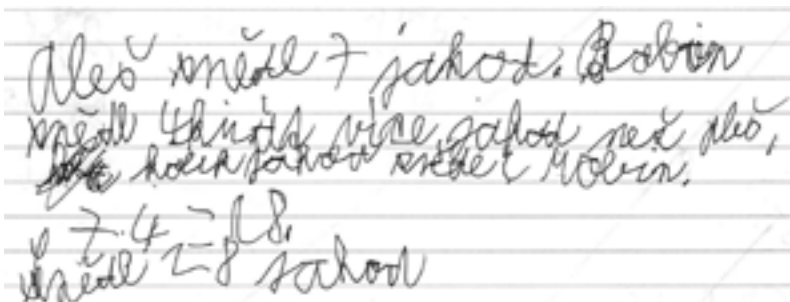 Aleš snědl 7 jahod. Robin
snědl 4krát více jahod než aleš,
kolik jahod snědl Robin.
7.4=28.
snědl 28 jahod